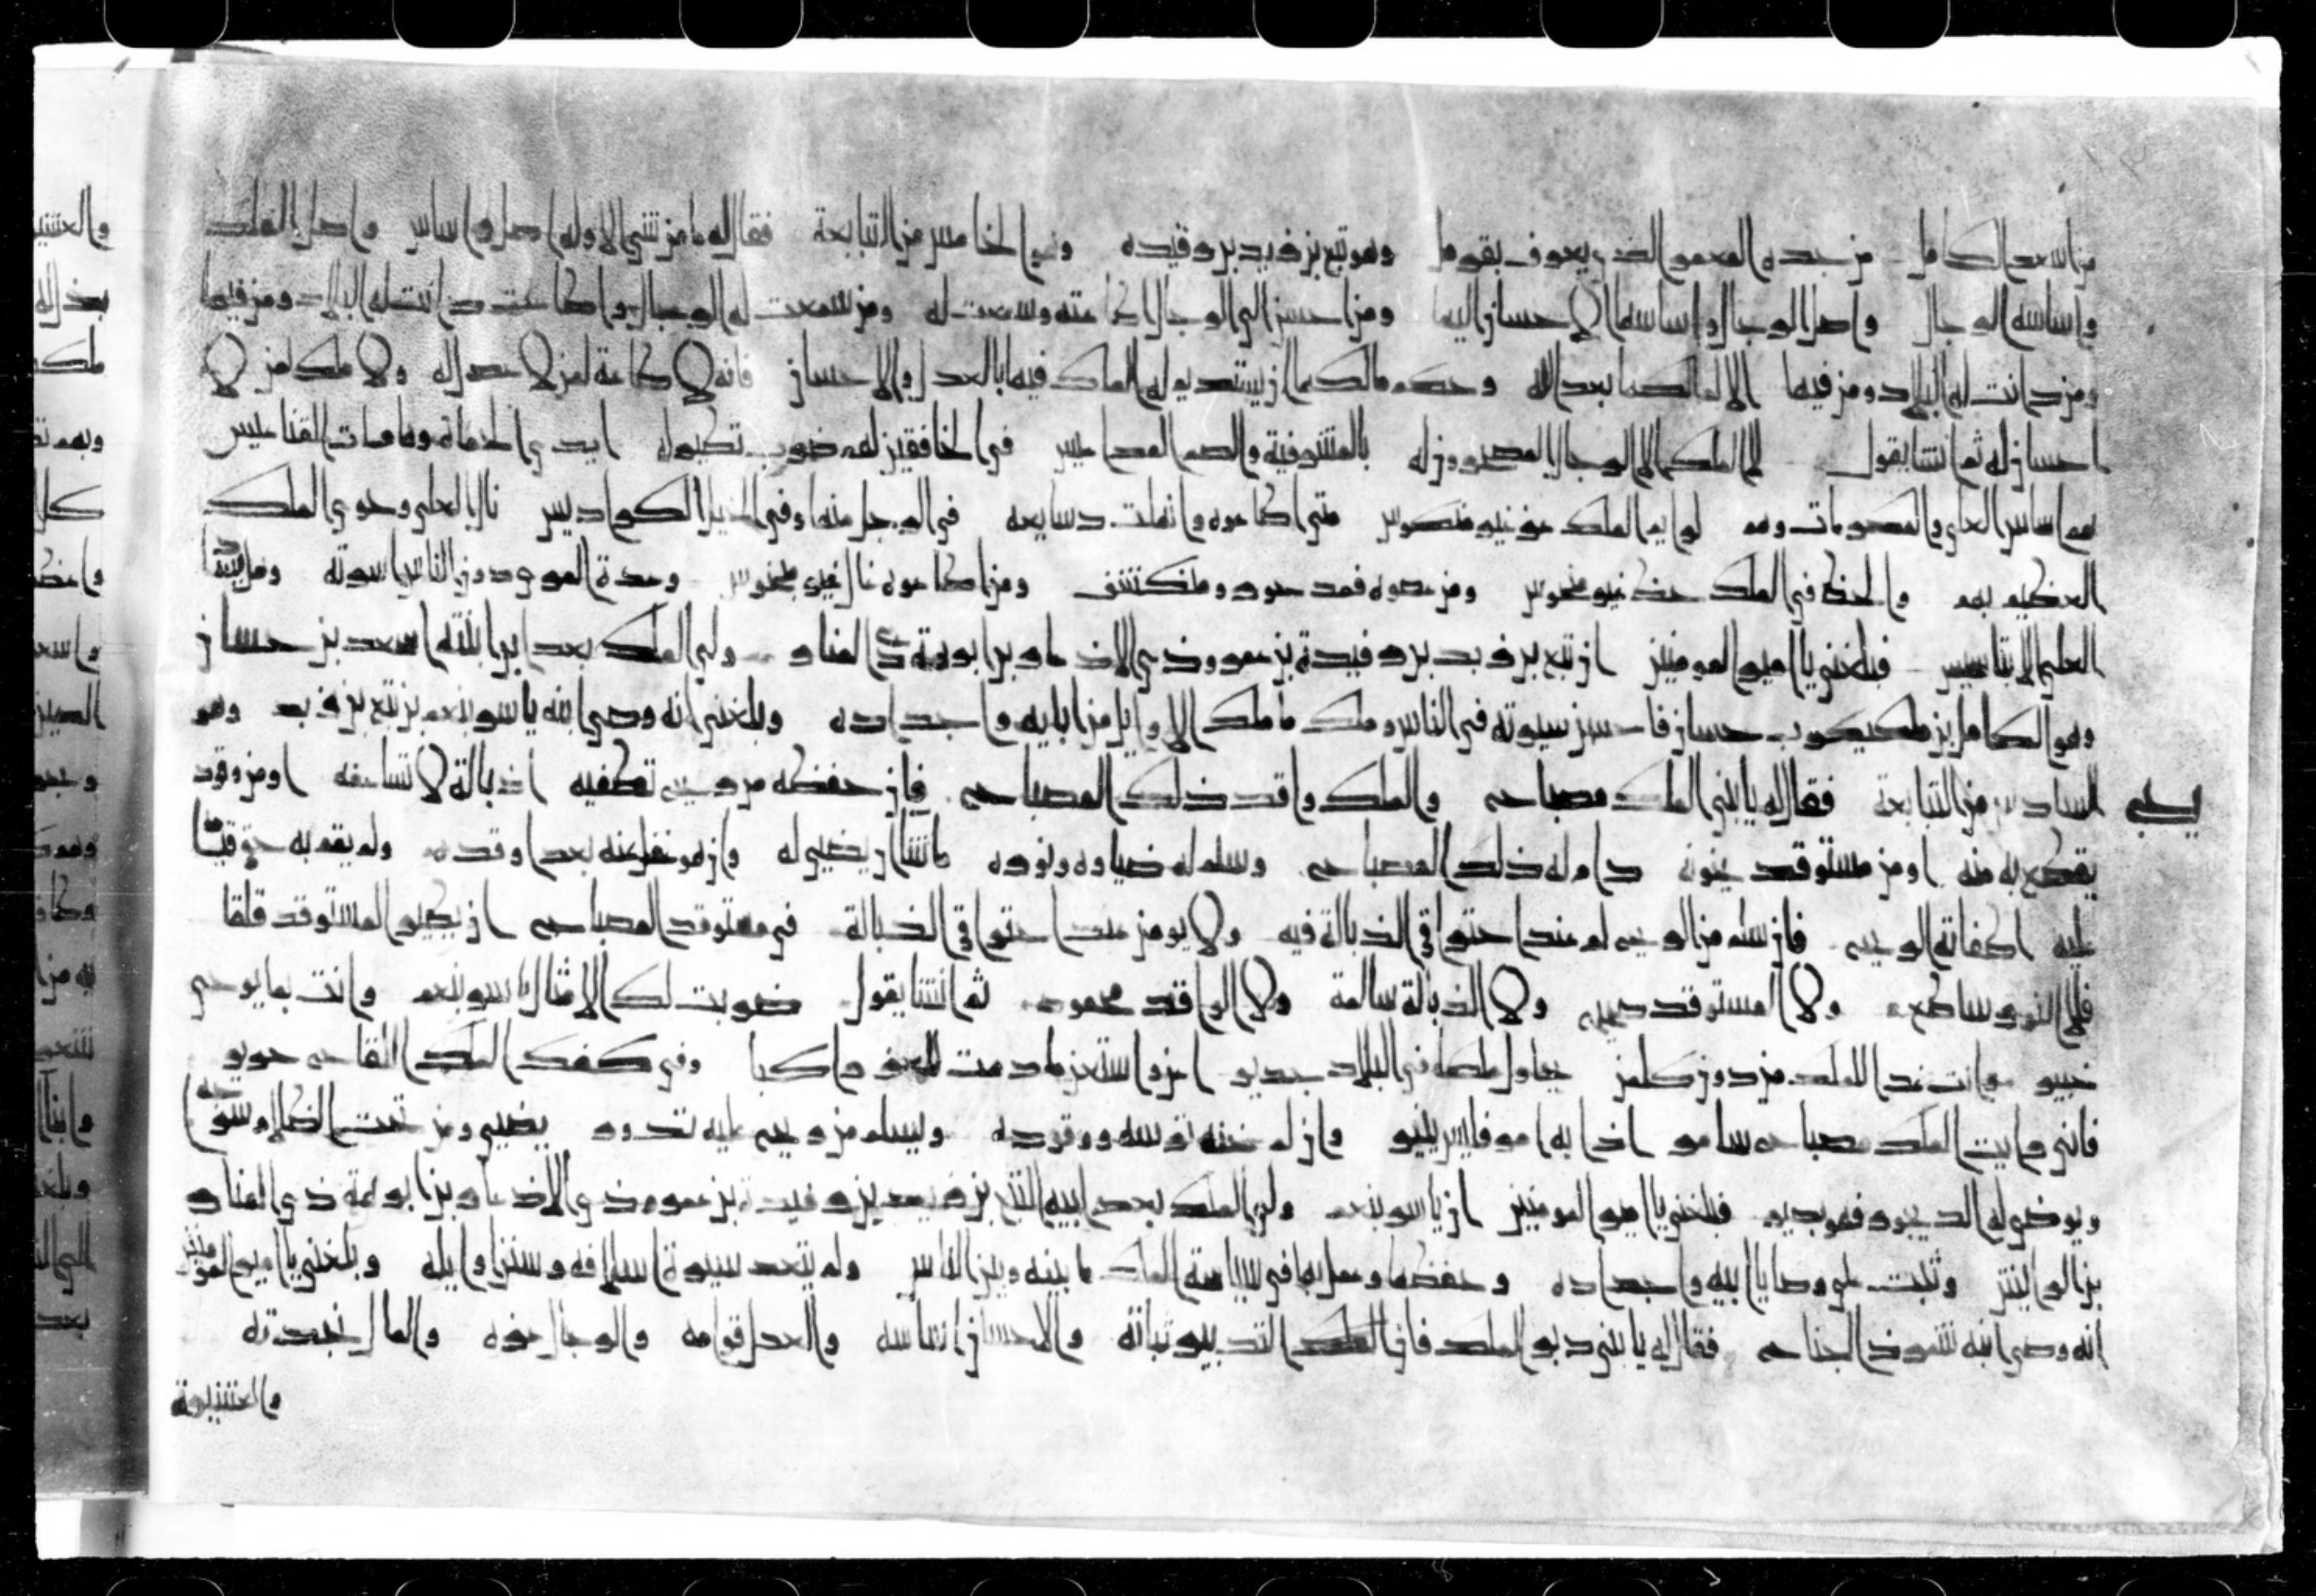 من اسعد الكامل من جده المعمر الذي يعرف بقومل وهو تبع بن زيد بن رفيده وهو الخامس من التبابعة فقال له ما من شي الا وله اصل واساس واصل الملك
واساسه الرجال واصل الرجال واساسها الاحسان اليها ومن احسن الى الرجال اطاعته وسمعت له ومن سمعت له الرجال واطاعت دانت له البلاد ومن فيها
ومن دانت له البلاد ومن فيها الا لمالكها بعد الله وحكم مالكها ان يستديم له الملك فيها بالعدل والاحسان فانه لا طاعة لمن لا عدل له ولا ملك لمن لا
احسان له ثم انشا يقول الملك الا الرجال المصحرون له بالمشرفية والصم المداعيس في الخافقين لهم ضرب تطير له ايدي الحماة وهامات القناعيس
هم اساس العلى والمكرمات وهم لوايم الملك عز غير منكوس متى اطاعوه وانهلت دسايعه في الرجل منها وفي الخيل الكراديس نال العلى وحوى الملك
العظيم بهم والحظ في الملك حظ غير منحوس ومن عصوه فمد حور ومنكشف ومن اطاعوه نال غير منحوس وعدة المرء دون الناس اسرته وما يشد
العلى الا بتاسيس فبلغني يا امير المومنين ان تبع بن زيد بن رفيدة بن عمرو ذي الاذعار بن ابرهة ذي المنار ولي الملك بعد ابن ابنته اسعد بن حسان
وهو الكامل بن ملكيكرب حسان فاحسن سيرته في الناس وملك ما ملك الاوايل من ابايه واجداده وبلغني انه وصى ابنه ياسر ينعم بن تبع بن زيد وهو
السادس من التبابعة فقال له يا بني الملك مصباح والملك واقد ذلك المصباح فان حفظه من ريح تطفيه او ذبالة لا تساعفه او من وقد
يقطع به منه او من مستوقد يخونه دام له ذلك المصباح وسلم له ضياوه ونوره ما شا ان يضي له وان هو غفل عنه بعد اوقده ولم يقم به حق قيا
عليه اطفاته الريح فان سلم من الريح لم عند احتراق الذبالة فيه ولا يومن عند احتراق الذبالة في مستوقد المصباح ان يطير المستوقد فلقا
فلا النور ساطع ولا المستوقد صحيح ولا الذبالة سالمة ولا الواقد محمود ثم انشا يقول ضربت لك الامثال ياسر ينعم وانت بما يوحى
خبير وانت غدا للملك من دون كل من يحاول ملكا في البلاد جدير اعز واستعن ما دمت للعز راكبا وفي كفك الملك اللقاح حرير
فاني رايت الملك مصباح سامر اذا به امر فليس ينير وان لم تخنه ترسه ووقوده ويسلم من ريح عليه تدور يضي ومن تحت الظلام شروحه
ويوضي له الديجور فهو بدير فبلغني يا امير المومنين ان ياسر ينعم ولي الملك بعد ابيه التبع بن زيد بن رفيدة بن عمرو ذي الاذعار بن ابرهة ذي المنار
بن الرايش وثبت على وصايا ابيه واجداده وحفظها وعمل بها في سياسة الملك ما بينه وبين الناس ولم يتعد سيرة اسلافه وسنن اوايله وبلغني يا امير المومنين
انه وصى ابنه شمر ذا الجناح فقال له يا بني دبر الملك فان الملك التدبير ثباته والاحسان اساسه والعدل قوامه والرجال عزه والمال نجدته
والعشيرة